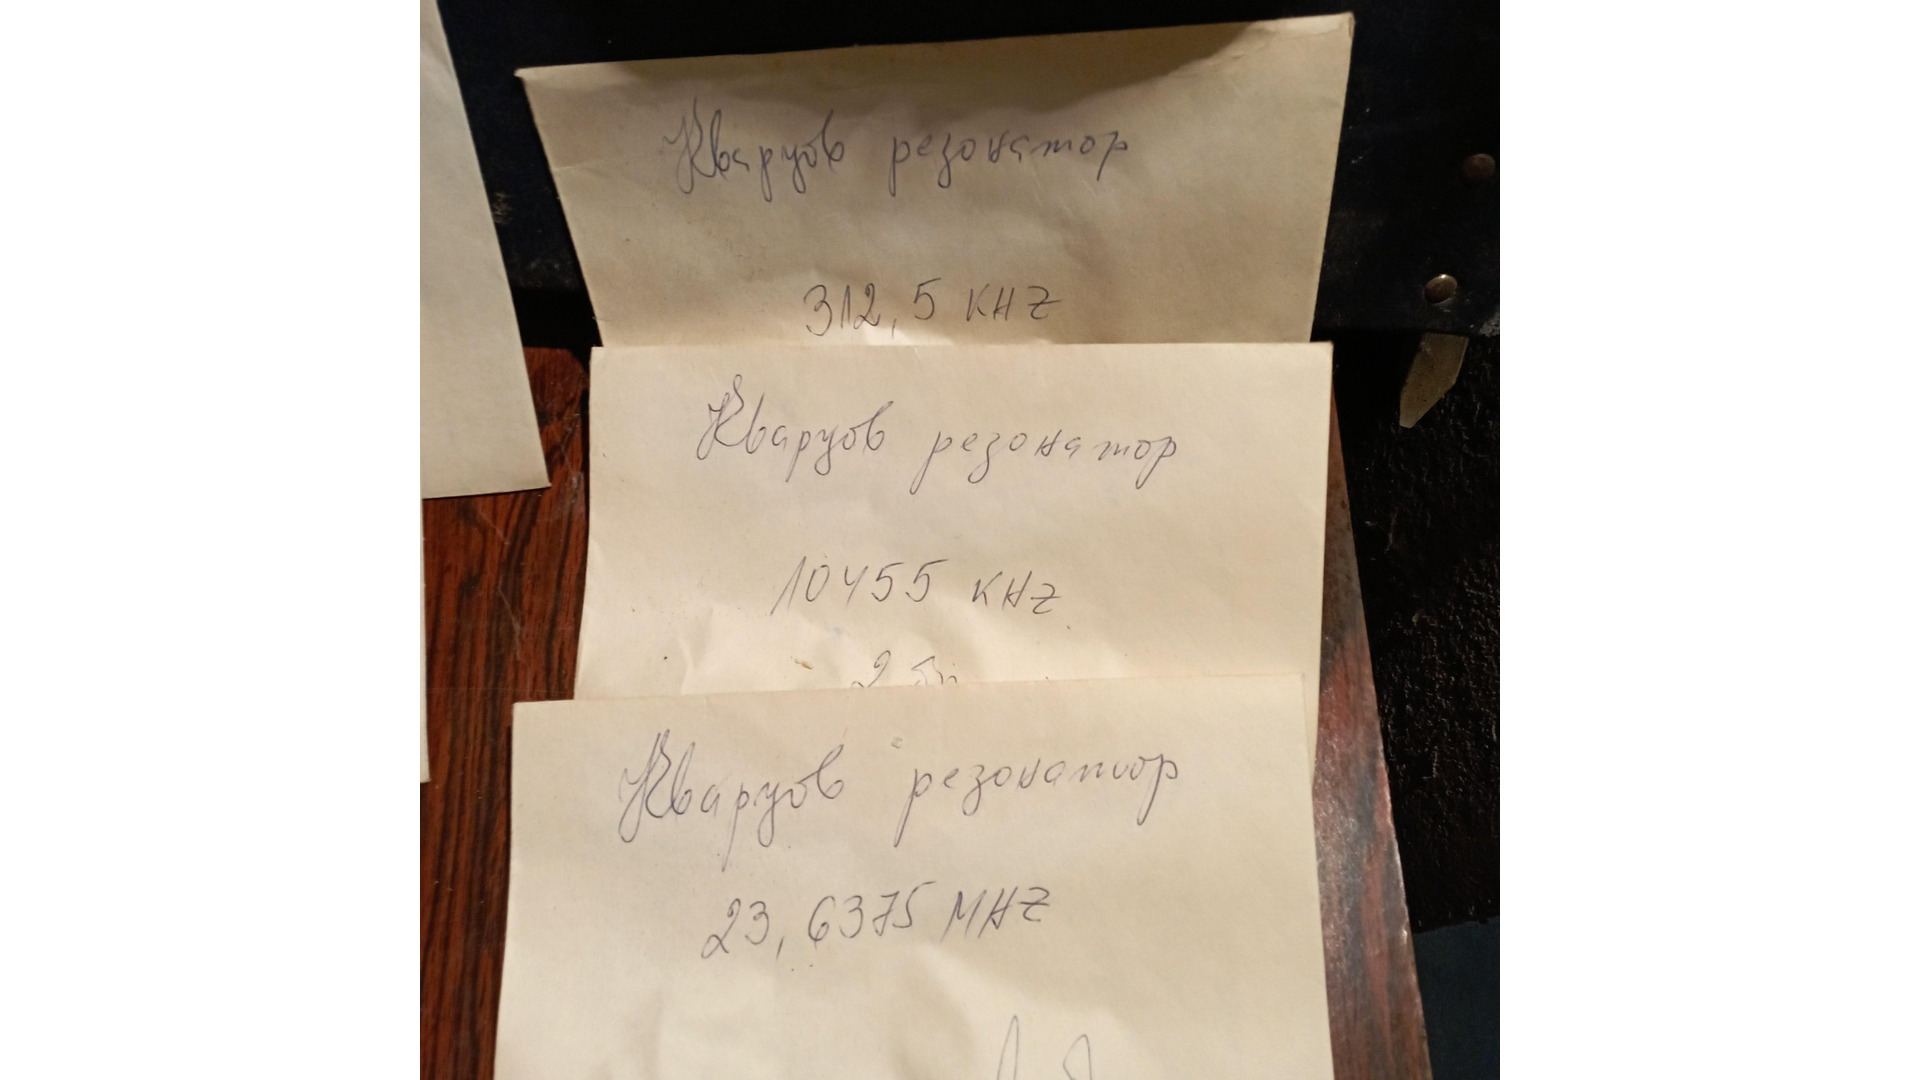 Кварцов резонатор
312,5 KHZ
Кварцов резонатор
10455 KHZ
2 бр
Кварцов резонатор
23,6375 MHZ